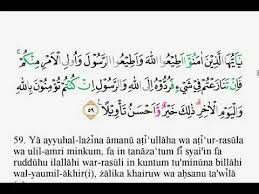 يٰٓاَيُّهَا الَّذِيْنَ اٰمَنُوْٓا اَطِيْعُوا اللّٰهَ وَاَطِيْعُوا الرَّسُوْلَ وَاُولِى الْاَمْرِ مِنْكُمْۚ
فَاِنْ تَنَازَعْتُمْ فِيْ شَيْءٍ فَرُدُّوْهُ اِلَى اللّٰهِ وَالرَّسُوْلِ اِنْ كُنْتُمْ تُؤْمِنُوْنَ بِاللّٰهِ
وَالْيَوْمِ الْاٰخِرِۗ ذٰلِكَ خَيْرٌ وَّاَحْسَنُ تَأْوِيْلًا ࣖ ٥٩
59. Yā ayyuhal-lażīna āmanū aṭī‘ullāha wa aṭī‘ur-rasūla
wa ulil-amri minkum, fa in tanāza‘tum fī syai'in fa
ruddūhu ilallāhi war-rasūli in kuntum tu'minūna billāhi
wal-yaumil-ākhir(i), żālika khairuw wa aḥsanu ta'wīlā